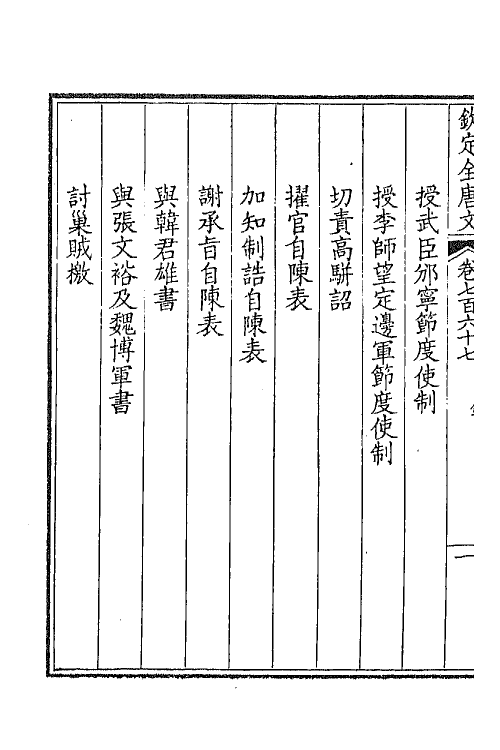 欽定全唐文
卷七百六十七
一
授武臣邠寧節度使制
授李師望定邊軍節度使制
切責高駢詔
擢官自陳表
加知制誥自陳表
謝承旨自陳表
與韓君雄書
與張文裕及魏博軍書
討巢賊檄